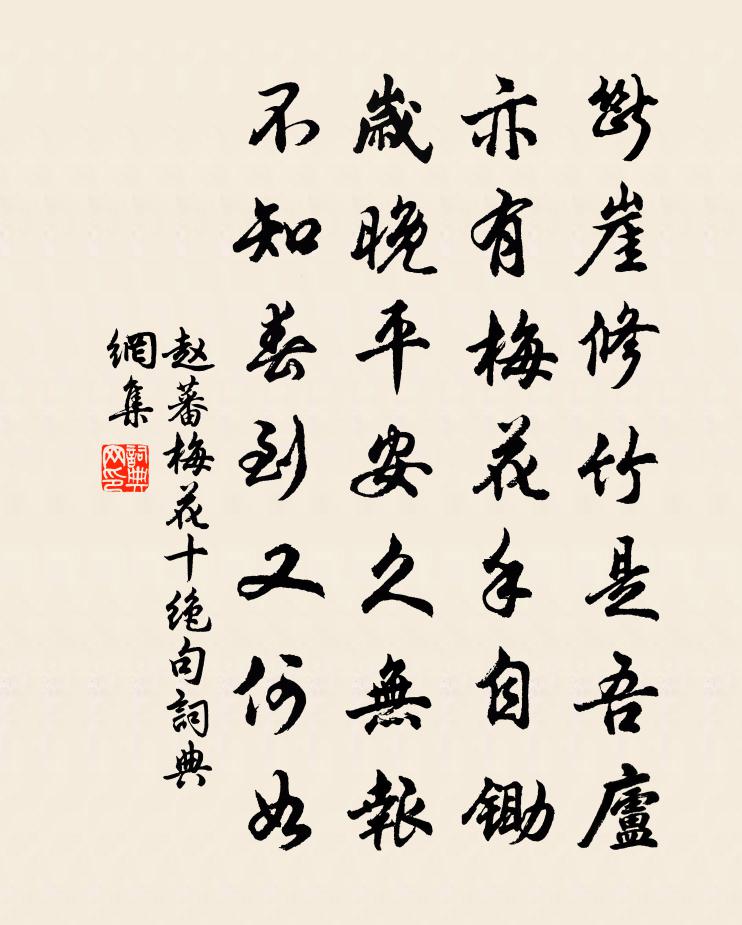 斷崖修竹是吾廬
亦有梅花手自鋤
歲晚平安久無報
不知春到又何如
赵蕃梅花十绝句詞典
網集
詞典
网印